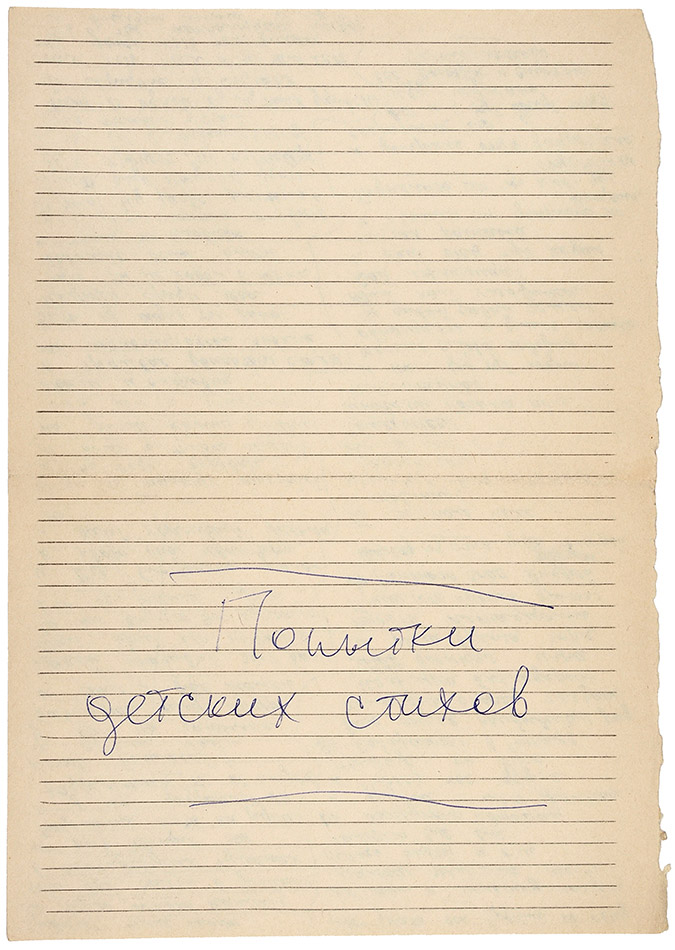 Попытки
детских стихов